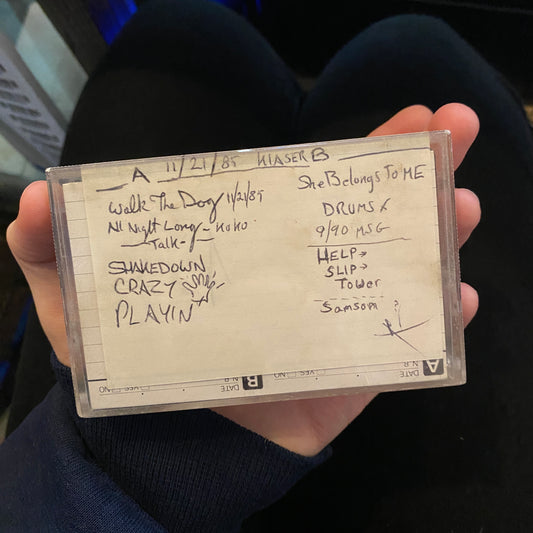 A 11/21/85 KIASER B
Walk The Dog 11/21/85
All Night Long - KOKO
Talk -
SHAKEDOWN
CRAZY
PLAYIN
She Belongs To ME
DRUMS
9/90 MSG
HELP →
SLIP →
Tower
Samson ?
A
DATE
N.R.
YES NO
B
DATE
N.R.
YES NO